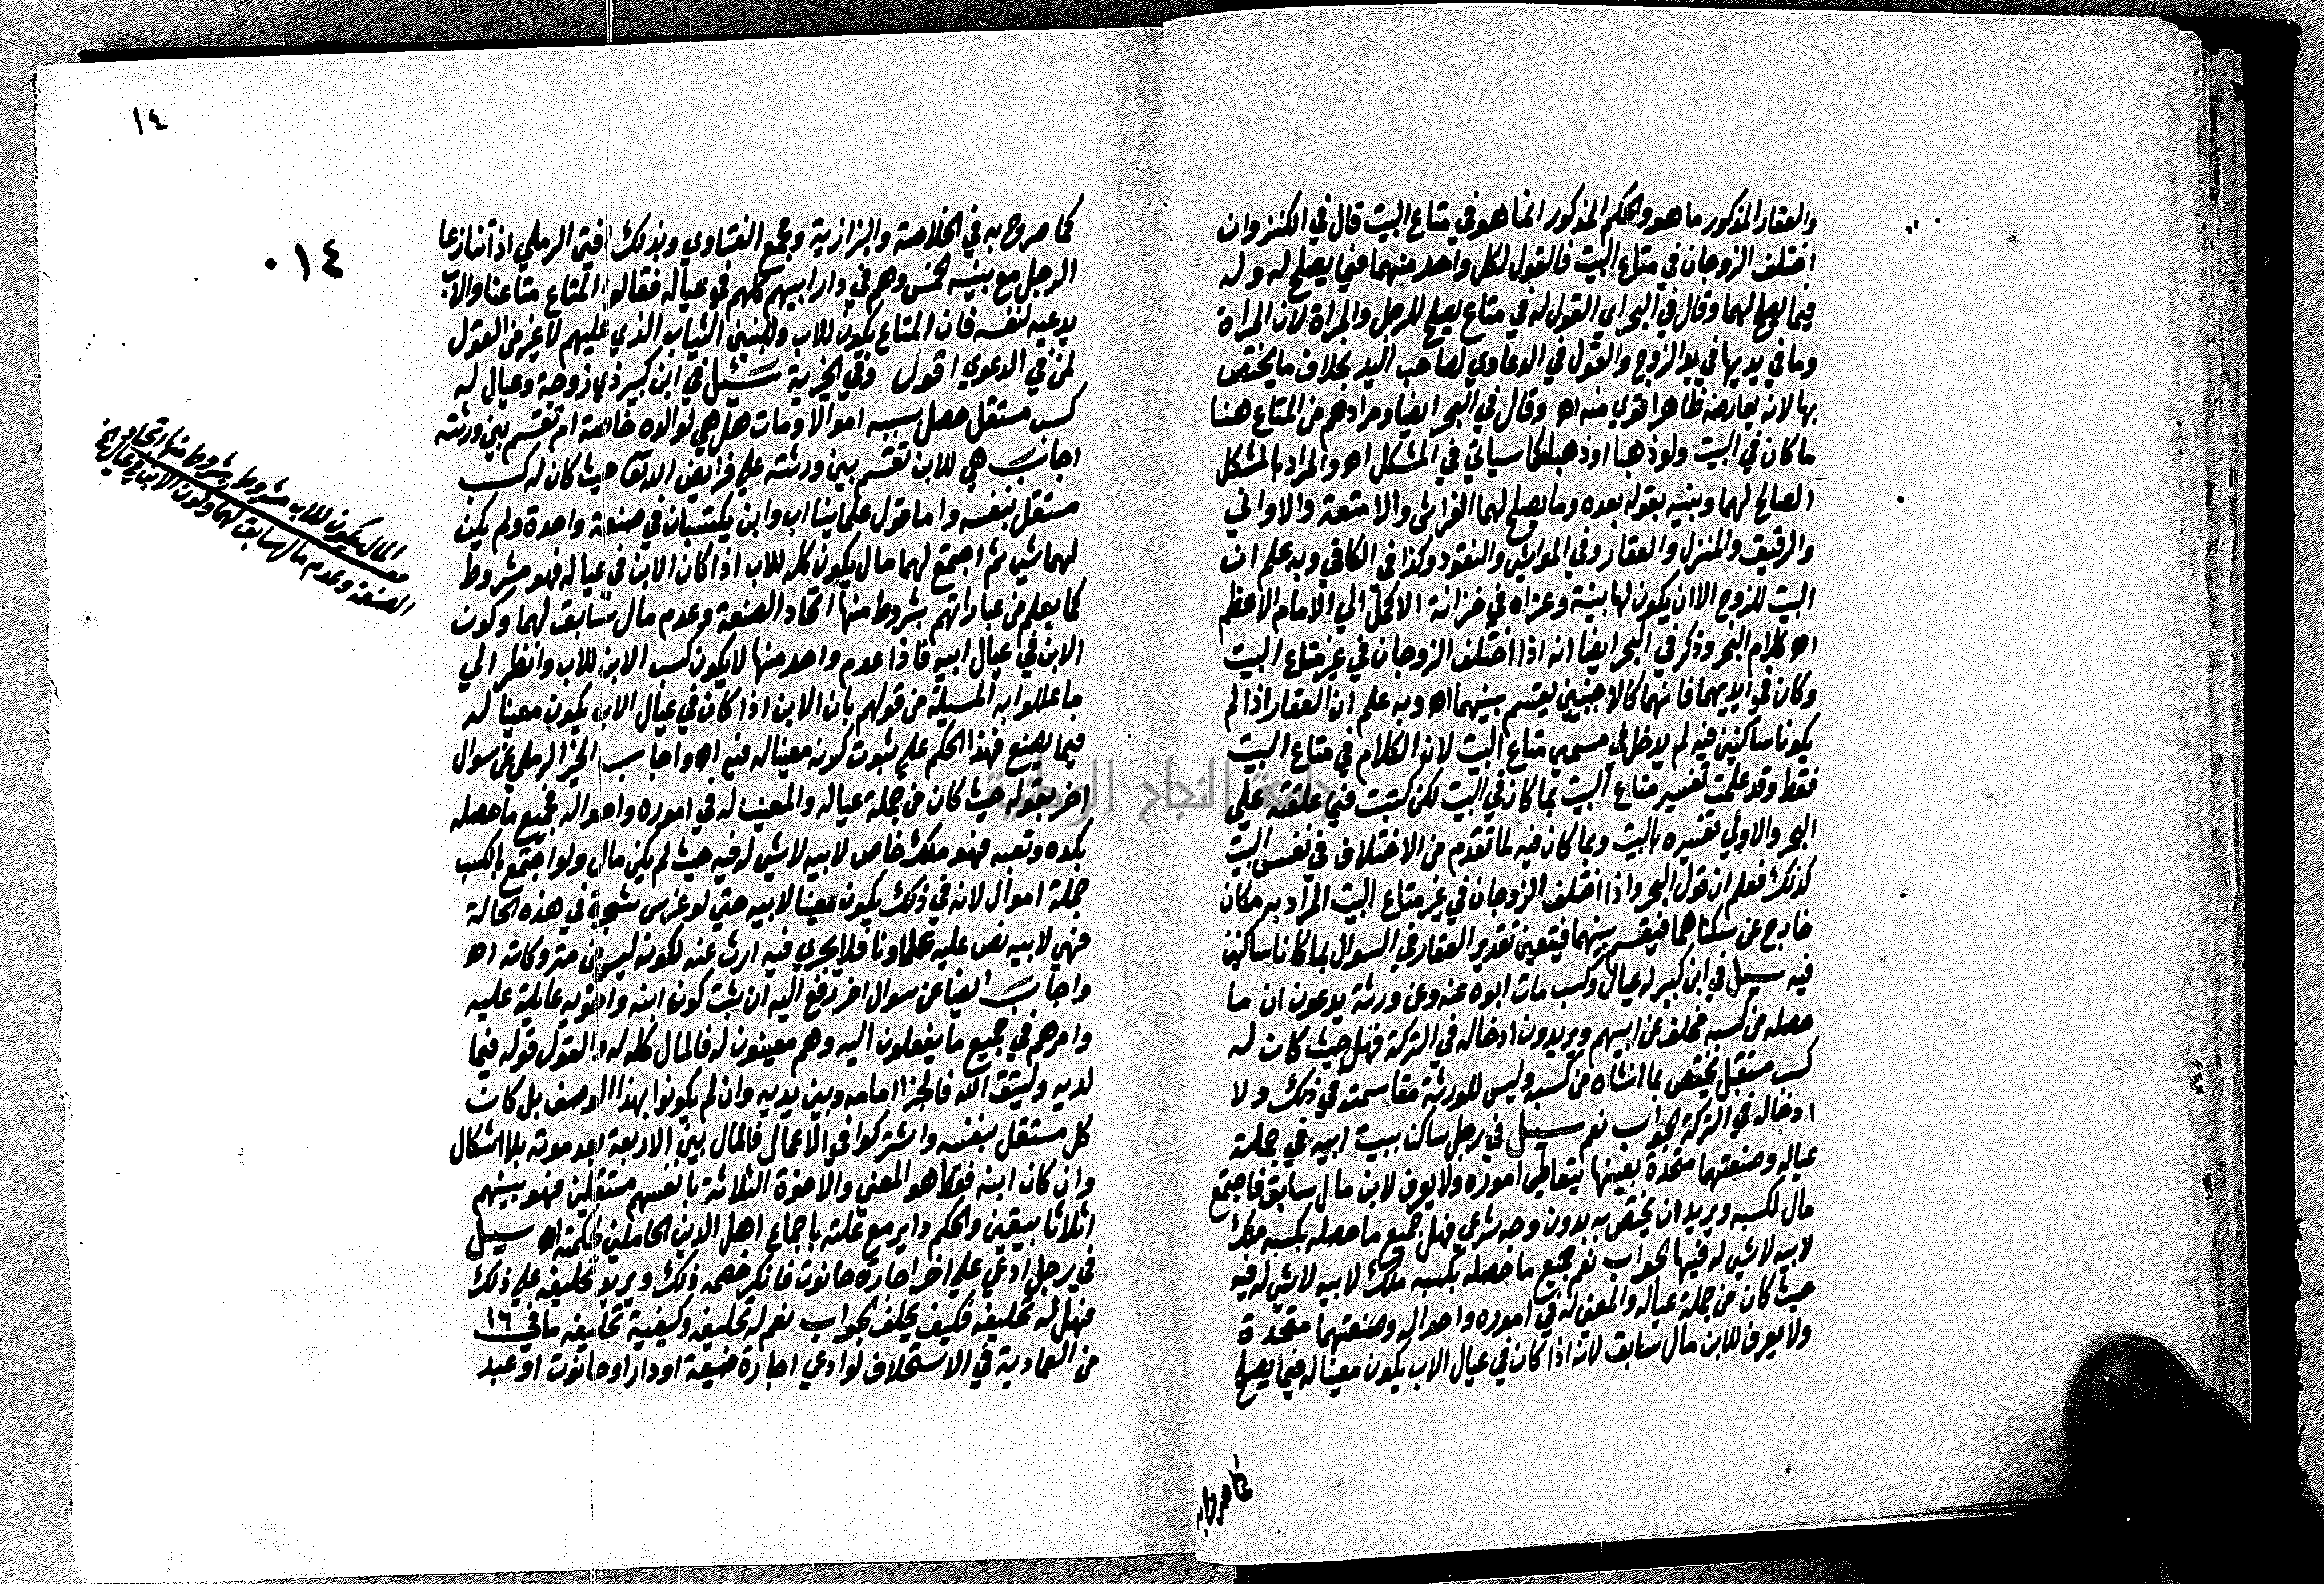 والعقار المذكور ما هو والحكم المذكور انما هو في متاع البيت قال في الكنز وان
اختلف الزوجان في متاع البيت فالقول لكل واحد منهما فيما يصلح له وله
فيما يصلح لهما وقال في البحر اي القول له في متاع يصلح للرجل والمراة لان المراة
وما في يديها في يد الزوج والقول في الدعاوي لصاحب اليد بخلاف ما يختص
بها لانه يعارضه ظاهر اقوي منه اه وقال في البحر ايضا ومرادهم من المتاع هنا
ما كان في البيت ولو ذهبا او فضة كما سياتي في المشكل اه والمراد بالمشكل
الصالح لهما وبينه بقوله بعده وما يصلح لهما الفراش والامتعة والاواني
والرقيق والمنزل والعقار وفي المواشي والنقود وكذا في الكافي وبه علم ان
البيت للزوج الا ان يكون لها بينة وعزاه في خزانة الاكمل الي الامام الاعظم
اه كلام البحر وذكر في البحر ايضا انه اذا اختلف الزوجان في غير متاع البيت
وكان في ايديهما فانهما كالاجنبيين يقسم بينهما اه وبه علم ان العقار اذا لم
يكونا ساكنين فيه لم يدخل في مسمى متاع البيت لان الكلام في متاع البيت
فقط وقد علمت تفسير متاع البيت بما كان في البيت لكن كتبت فيما علقته علي
البحر والاولي تفسيره بالبيت وبما كان فيه لما تقدم من الاختلاف في نفس البيت
كذلك فعلم ان قول البحر واذا اختلف الزوجان في غير متاع البيت المراد به مكان
خارج عن سكناهما فيقسم بينهما فيتعين تقدير العقار في السوال بما كانا ساكنين
فيه سيل في ابن كبير له عيال وكسب مات ابوه عنه وعن ورثة يدعون ان ما
حصله من كسبه مخلف عن ابيهم ويريدون ادخاله في التركة فهل حيث كان له
كسب مستقل يختص بما انشاه من كسبه وليس للورثة مقاسمته في ذلك ولا
ادخاله في التركة الجواب نعم سيل في رجل ساكن ببيت ابيه في جملة
عياله وصنعتهما متحدة بعينها يتعاطي اموره ولا يعرف لابن مال سابق فاجتمع
مال لكسبه ويريد ان يختص به بدون وجه شرعي فهل جميع ما حصله بكسبه ملك
لابيه لا شي له فيها الجواب نعم جميع ما حصله بكسبه ملك لابيه لا شي له فيه
حيث كان من جملة عياله والمعين له في اموره واحواله وصنعتهما متحدة
ولا يعرف للابن مال سابق لانه اذا كان في عيال الاب يكون معينا له فيما يصلح
كما صرح به
١٤
٠١٤
كما صرح به في الخلاصة والبزازية ومجمع الفتاوي وبذلك افتي الرملي اذا تنازعا
الرجل مع بنيه الخمس وهم في دار ابيهم كلهم في عياله فقالوا المتاع متاعنا والاب
يدعيه لنفسه فان المتاع يكون للاب وللبنين الثياب الذي عليهم لا غير فن القول
لمن في الدعوي اقول وفي الخيرية سئيل في ابن كبير ذي زوجة وعيال له
كسب مستقل حصل بسببه اموالا ومات هل هي لوالده خاصة ام تقسم بين ورثته
اجاب هي للابن تقسم بين ورثته علي فرايض الله تعا حيث كان له كسب
مستقل بنفسه واما قول علماينا اب وابن يكتسبان في صنعة واحدة ولم يكن
لهما شي ثم اجتمع لهما مال يكون كله للاب اذا كان الابن في عياله فهو مشروط
كما يعلم من عباراتهم بشروط منها اتحاد الصنعة وعدم مال سابق لهما وكون
الابن في عيال ابيه فاذا عدم واحد منها لا يكون كسب الابن للاب وانظر الي
ما عللوا به المسيلة من قولهم بان الابن اذا كان في عيال الاب يكون معينا له
فيما يصنع فهذا الحكم علي ثبوت كونه معينا له فيه اه واجاب الخير الرملي عن سوال
اخر بقوله حيث كان من جملة عياله والمعين له في اموره واحواله فجميع ما حصله
بكده وتعبه فهو ملك خاص لابيه لا شي له فيه حيث لم يكن مال ولو اجتمع بالكسب
جملة اموال لانه في ذلك يكون معينا لابيه حتي لو غرس شجرة في هذه الحالة
فهي لابيه نص عليه علماونا فلا يجري فيه ارث عنه لكونه ليس من متروكاته اه
واجاب ايضا عن سوال اخر رفع اليه ان ثبت كون ابنه واخوته عايلة عليه
وامرهم في جميع ما يفعلون اليه وهم معينون له فالمال كله له والقول قوله فيما
لديه وليتق الله فالجزا امامه وبين يديه وان لم يكونوا بهذا الوصف بل كان
كل مستقل بنفسه واشتركوا في الاعمال فالمال بين الاربعة بعد موته بلا اشكال
وان كان ابنه فقط هو المعين والاخوة الثلاثة بانفسهم مستقلين فهو بينهم
اثلاثا بيقين والحكم داير مع علته باجماع اهل الدين الحاملين لحكمته اه سيل
في رجل ادعي علي اخر اجارة حانوت فانكر خصمه ذلك ويريد تحليفه علي ذلك
فهل له تحليفه فكيف يحلف الجواب نعم له تحليفه وكيفية تحليفه ما في ١٦
من العمادية في الاستحلاف لو ادعي اجارة ضيعة او دار او حانوت او عبد
المال يكون للاب مشروط بشروط منها اتحاد
الصنعة وعدم مال سابق لهما وكون الابن في عيال